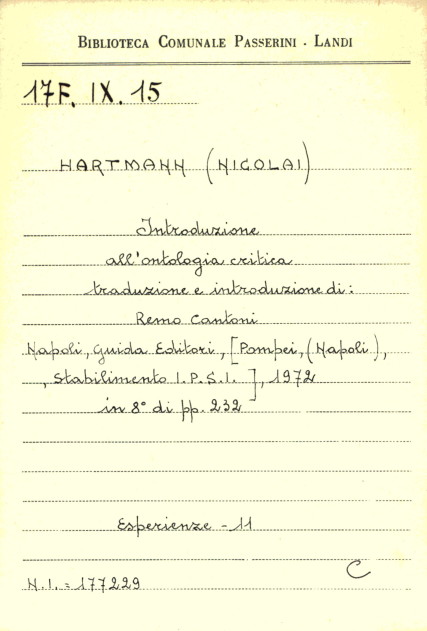 BIBLIOTECA COMUNALE PASSERINI - LANDI
17F. IX. 15
HARTMANN (NICOLAI)
Introduzione
all'ontologia critica
traduzione e introduzione di:
Remo Cantoni
Napoli, Guida Editori, [Pompei, (Napoli),
, Stabilimento I.P.S.I.], 1972
in 8° di pp. 232
Esperienze - 11
C
N.I. = 177229